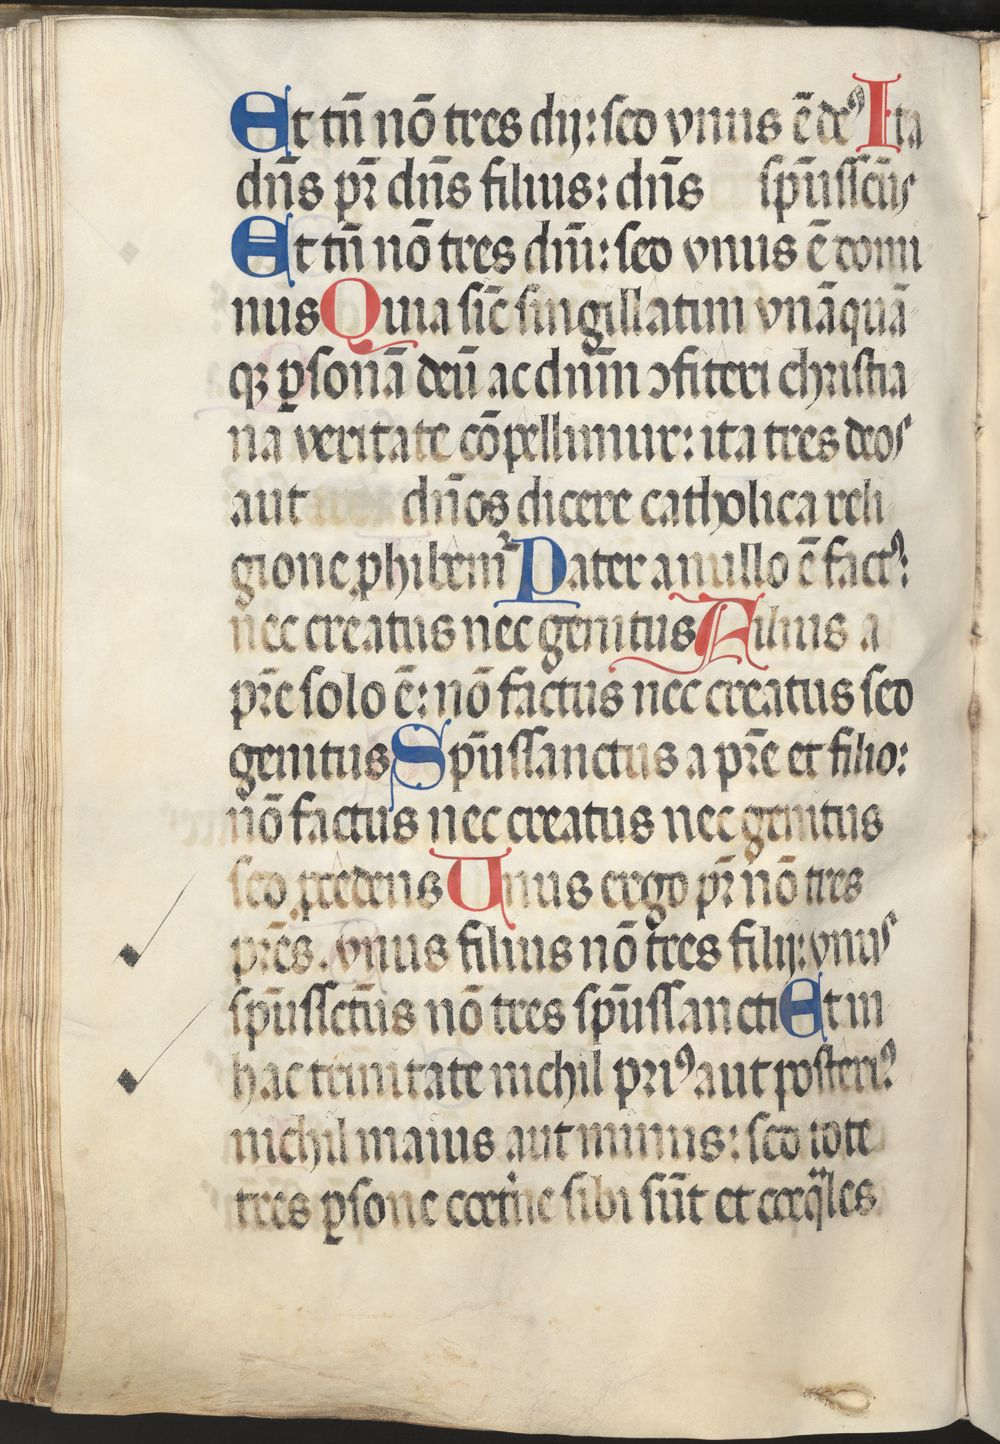 Et tn̄ nō tres dij: sed vnus ē deꝰ Ita
dn̄s pr̄ dn̄s filius: dn̄s sp̄ussc̄us
Et tn̄ nō tres dn̄i: sed vnus ē domi
nus Quia sic̄ singillatim vnāquā
qꝫ ꝑsonā deū ac dn̄m ↄfiteri christia
na veritate cōpellimur: ita tres deos
aut dn̄os dicere catholica reli
gione ꝓhibemꝰ Pater a nullo ē factꝰ:
nec creatus nec genitus Filius a
pr̄e solo ē: nō factus nec creatus sed
genitus Sp̄ussanctus a pr̄e et filio:
nō factus nec creatus nec genitus
sed ꝓcedens Unus ergo pr̄ nō tres
pr̄es. vnus filius nō tres filij: vnus
sp̄ussct̄us nō tres sp̄ussancti Et in
hac trinitate nichil priꝰ aut posteriꝰ
nichil maius aut minus: sed tote
tres ꝑsone coet̄ne sibi sūt et coeq̄les